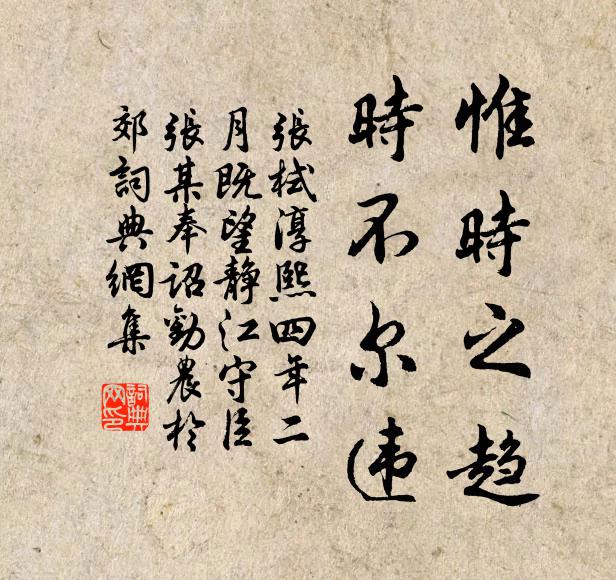 惟時之趋
時不尔违
張栻淳熙四年二
月既望静江守臣
張某奉詔勸農於
郊詞典網集
詞典
网印